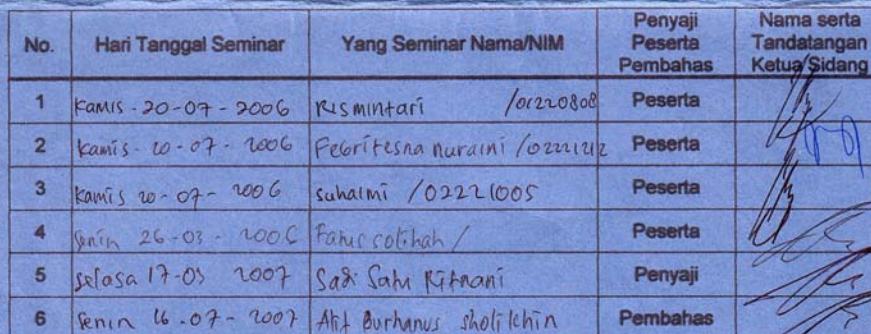 No. Hari Tanggal Seminar Yang Seminar Nama/NIM Penyaji Peserta Pembahas Nama serta Tandatangan Ketua Sidang
1 Kamis - 20-07-2006 Rismintari /01220808 Peserta
2 Kamis - 20-07-2006 Febritesna nuraini /02221212 Peserta
3 Kamis 20-07-2006 suhalmi /02221005 Peserta
4 Senin 26-03- solihah / Peserta
5 selasa 17-03 2007 Satu Penyaji
6 Senin 16-07-2007 Alif Burhanus Pembahas